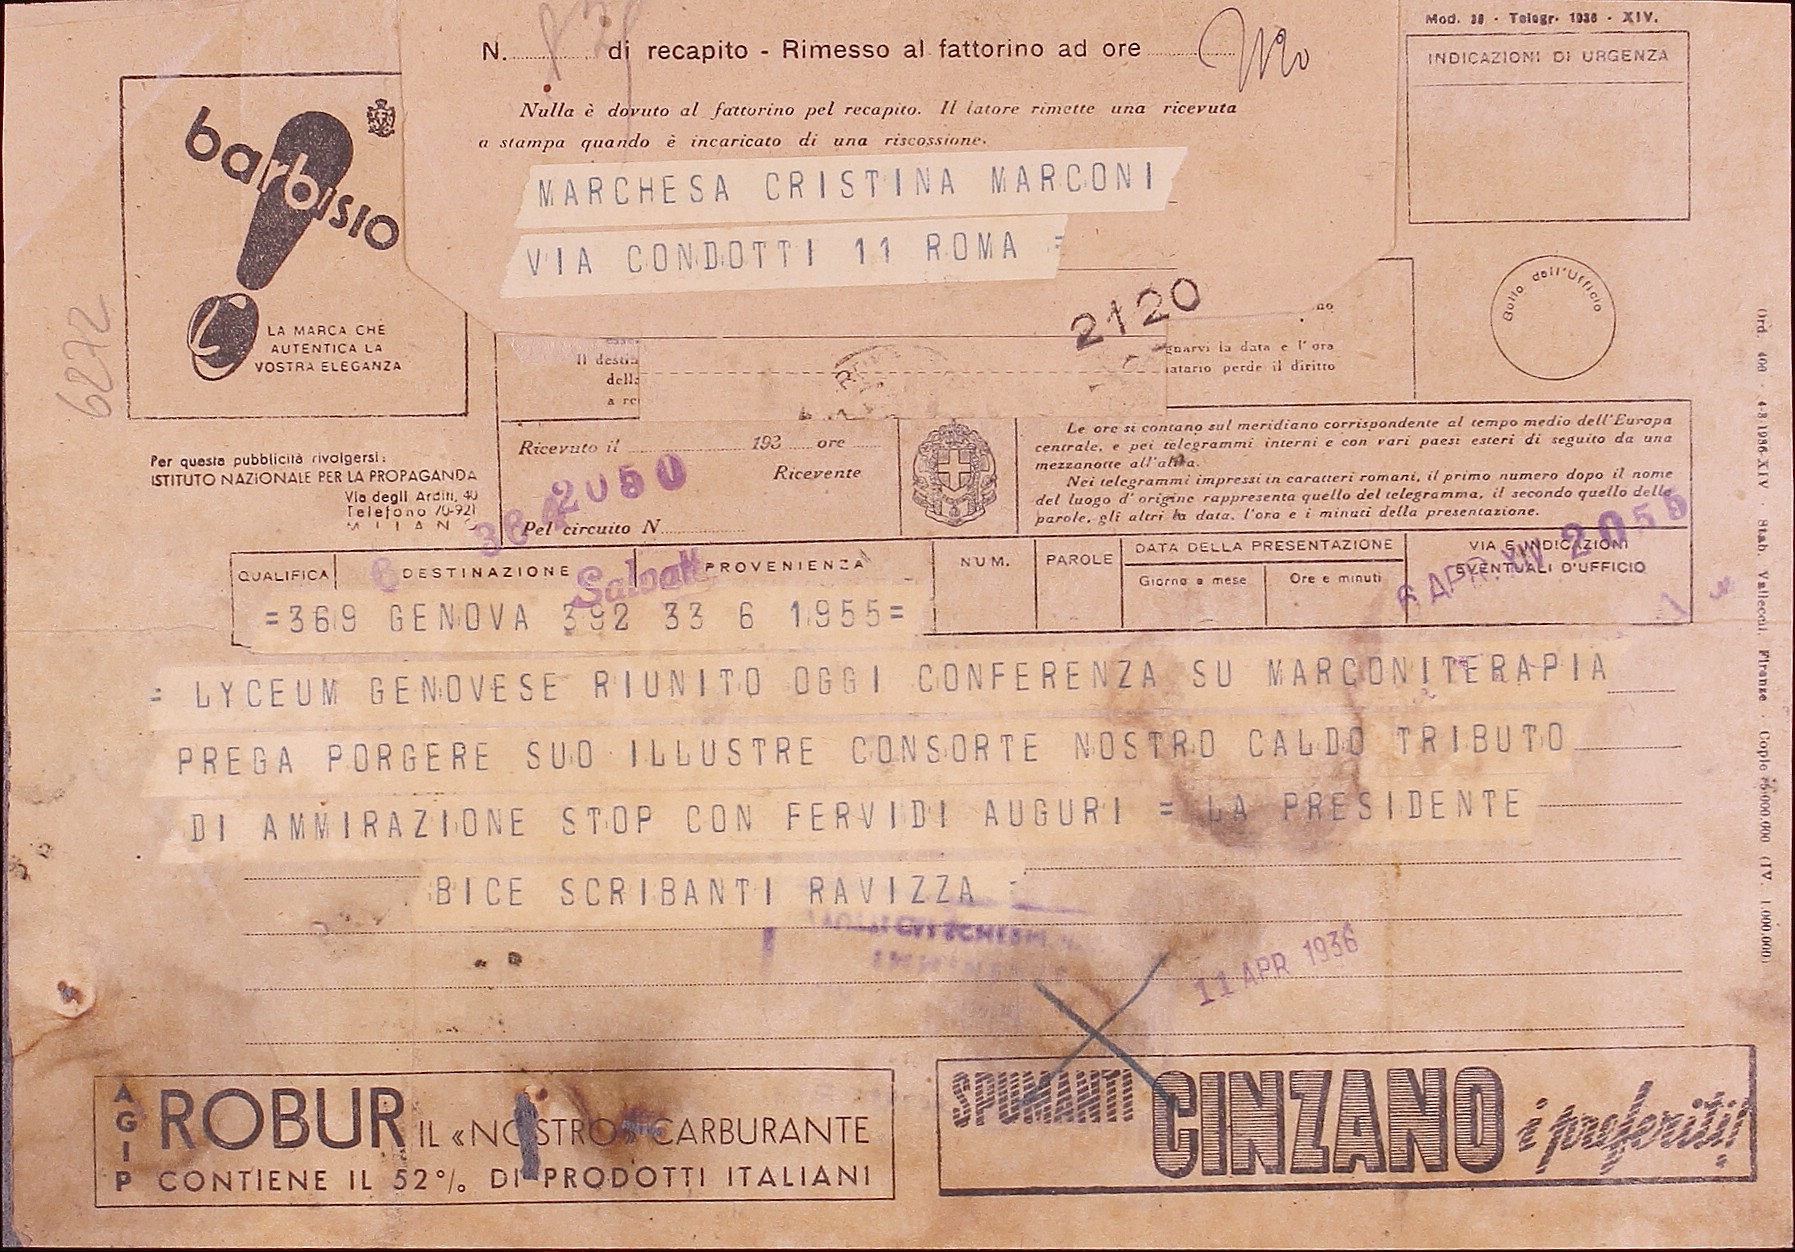 Mod. 30 - Telegr. 1936 - XIV.
N. di recapito - Rimesso al fattorino ad ore
INDICAZIONI DI URGENZA
Nulla è dovuto al fattorino pel recapito. Il latore rimette una ricevuta
a stampa quando è incaricato di una riscossione.
barbisio
LA MARCA CHE
AUTENTICA LA
VOSTRA ELEGANZA
6272
MARCHESA CRISTINA MARCONI
VIA CONDOTTI 11 ROMA =
2120
Bollo dell'Ufficio
Il destin
della
a re
gnarvi la data e l'ora
natario perde il diritto
Per questa pubblicità rivolgersi:
ISTITUTO NAZIONALE PER LA PROPAGANDA
Via degli Arditi, 40
Telefono 70-921
MILANO
Ricevuto il 193 ore
2050
Ricevente
Pel circuito N.
Le ore si contano sul meridiano corrispondente al tempo medio dell'Europa
centrale, e pei telegrammi interni e con vari paesi esteri di seguito da una
mezzanotte all'altra.
Nei telegrammi impressi in caratteri romani, il primo numero dopo il nome
del luogo d'origine rappresenta quello del telegramma, il secondo quello delle
parole, gli altri la data, l'ora e i minuti della presentazione.
QUALIFICA DESTINAZIONE PROVENIENZA NUM. PAROLE DATA DELLA PRESENTAZIONE VIA E INDICAZIONI
EVENTUALI D'UFFICIO
Giorno e mese Ore e minuti
6 APR. XIV 2055
=369 GENOVA 392 33 6 1955=
= LYCEUM GENOVESE RIUNITO OGGI CONFERENZA SU MARCONITERAPIA
PREGA PORGERE SUO ILLUSTRE CONSORTE NOSTRO CALDO TRIBUTO
DI AMMIRAZIONE STOP CON FERVIDI AUGURI = LA PRESIDENTE
BICE SCRIBANTI RAVIZZA =
11 APR 1936
AGIP
ROBUR IL «NOSTRO» CARBURANTE
CONTIENE IL 52% DI PRODOTTI ITALIANI
SPUMANTI CINZANO i preferiti!